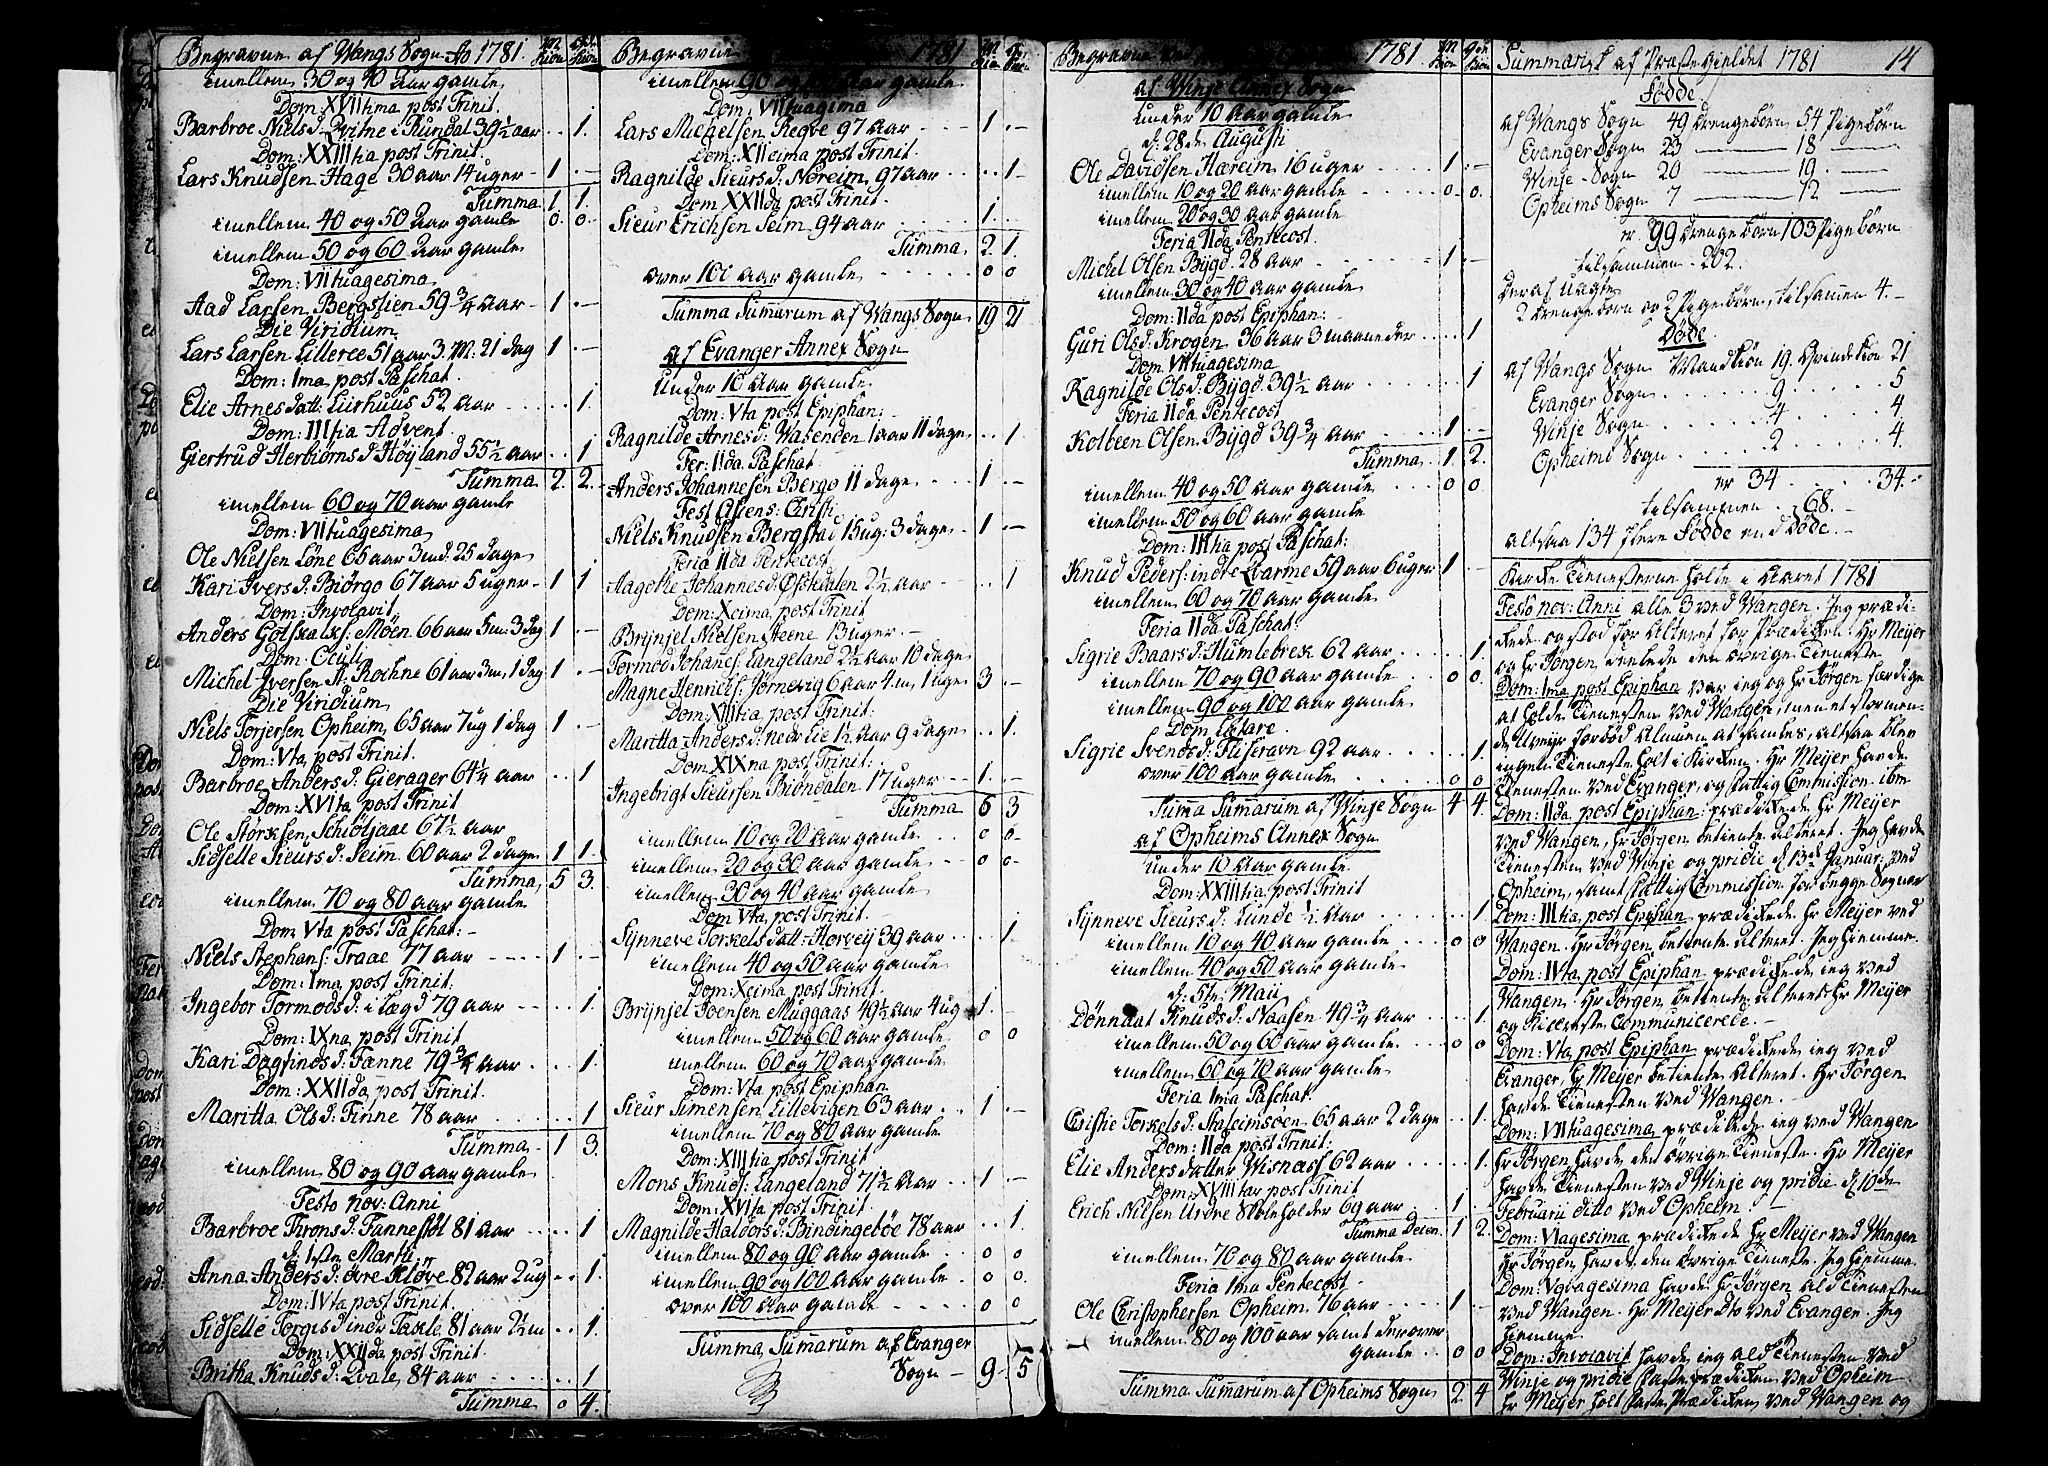 Begravne af Wangs Sogn Ao 1781.
imellem 30 og 40 Aar gamle
Dom: XVIItima post Trinit.
Barbroe Niels d. Qvitne i Rundal 39½ aar . . 1.
Dom: XXIIItia post Trinit.
Lars Knudsen Hage 30 aar 14 uger - 1 . -
Summa 1 1.
imellem 40 og 50 Aar gamle 0. 0.
imellem 50 og 60 Aar gamle
Dom: VIItuagesima
Aad Larsen Bergstien 59 3/4 aar - 1 . -
Die Viridium
Lars Larsen Lillerce 51 aar 3. M: 21 dag 1 . -
Dom: 1ma post Paschat.
Elie Arnes datt: Liirhuus 52 aar . . . . . 1.
Dom: IIItia Advent.
Giertrud Herbiörns d. Höyland 55½ aar . . 1
Summa 2. 2.
imellem 60 og 70 aar gamle
Dom: VIItuagesima
Ole Nielsen Löne 65 aar 3 md. 25 dage
Kari Ivers d. Biörgo 67 aar 5 uger - 1 1
Dom: Invocavit
Anders Gotskalks: Möen 66 aar 5 m: 3 dag 1 . -
Dom: Oculi
Michel Iversen St. Rochne 61 aar 3 m, 1 dag 1 . -
Die Viridium
Niels Torjersen Opheim 65 aar 7 ug 1 dag 1 . -
Dom: Vta post Trinit.
Barbroe Anders d. Gierager 64¼ aar . . 1
Dom: XVIta post Trinit
Ole Storksen Schiötjaae 67½ aar
Sidselle Sieurs d. Seim 60 aar 2 dage 1 1.
Summa 5 3.
imellem 70 og 80 aar gamle
Dom Vta post Paschat: -
Niels Stephans: Traae 77 aar - - - - 1 . -
Dom: 1ma post Trinit:
Ingebor Tormods d: i Lægd 79 aar - - - . . 1.
Dom: IXna post Trinit
Kari Dagfinds d: Fanne 79 3/4 aar . . . 1.
Dom: XXIIda post Trinit.
Maritta Ols d: Finne 78 aar . . . . . . 1
Summa - 1 3.
imellem 80 og 90 aar gamle
Festo nov: Anni
Barbroe Trons d: Fannestöl 81 aar . . . . . 1
d. 1ste Martii
Anna Anders d: övre Klöve 82 aar 2 ug . . 1.
Dom: IVta post Trinit.
Sidselle Torgis d: indr Taxle 81 aar 2½ m . . 1.
Dom: XXIIda post Trinit.
Britha Knuds d: Qvale 84 aar . . . . . 1
Summa 0 4.
Begravne 1781
imellem 90 og 100 aar gamle
Dom: VIItuagima
Lars Michelsen Regve 97 aar - - - - 1 . -
Dom: XIIcima post Trinit.
Ragnilde Sieurs d: Noreim 97 aar . . . . . 1 -
Dom XXIIda post Trinit.
Sieur Erichsen Seim 94 aar 1.
Summa 2 1.
over 100 aar gamle - - - - - 0 0
Summa Summarum af Wangs Sogn 19 21
af Evanger Annex Sogn
under 10 aar gamle
Dom: Vta post Epiphan:
Ragnilde Arnes d: Vasenden 1 aar 11 dage . . 1.
Fer: IIda Paschat:
Anders Johannesen Bergo 11 dage - - - - 1 . -
Fest Ascens: Christi
Niels Knudsen Bergstad 15 ug: 3 dage - 1 . -
Feria IIda Pentecost
Aagothe Johannes d. Öschdalen 2½ aar - - . . 1
Dom: Xcima post Trinit
Brynjel Nielsen Steene 13 uger. -
Tormod Johans: Langeland 2½ aar 10 dage
Magne Henrichs: Jörnevig 6 aar 4 m, 1 uge 3 . -
Dom: XIIItia post Trinit:
Maritta Anders d: nedr Lie 1½ aar 9 dage . . 1.
Dom: XIXna post Trinit:
Ingebrigt Sieursen Biöndalen 17 uger - - 1. -
Summa 6 3
imellem 10 og 20 aar gamle . 0 0.
imellem 20 og 30 aar gamle - - 0 0-
imellem 30 og 40 aar gamle
Dom Vta post Trinit. -
Synneve Torkels datt: Horvey 39 aar - - . . 1.
imellem 40 og 50 aar gamle
Dom: Xcima post Trinit.
Brynjel Joensen Muggaas 49½ aar 4 ug 1. -
imellem 50 og 60 aar gamle 0 0
imellem 60 og 70 aar gamle
Dom: Vta post Epiphan
Sieur Simensen Lillevigen 63 aar . . 1 . -
imellem 70 og 80 aar gamle
Dom: XIIItia post Trinit
Mons Knuds: Langeland 71½ aar - - 1 . -
Dom: XVIta post Trinit
Magnilde Haldors d: Bindingeböe 78 aar . . 1
imellem 80 og 90 aar gamle . . 0 0
imellem 90 og 100 aar gamle . 0 0.
over 100 aar gamle - - - - - 0 0
Summa Summarum af Evanger
Sogn - 9 . 5
Begravne 1781.
af Winje Annex Sogn
under 10 aar gamle
d: 28de Augusti
Ole Davidsen Hæreim 16 uger - - - - 1 . -
imellem 10 og 20 aar gamle - - - 0 . 0.
imellem 20 og 30 aar gamle
Feria IIda Pentecost.
Michel Olsen Bygd. 28 aar - - - - - 1 . -
imellem 30 og 40 aar gamle
Dom: IIda post Epiphan:
Guri Ols d: Krogen 36 aar 3 maaneder . . . 1
Dom VIItuagesima
Ragnilde Ols d: Bygd 39½ aar . . . . . . 1
Feria IIda Pentecost
Kolbeen Olsen Bygd 39 3/4 aar - - - 1 . -
Summa . 1. 2.
imellem 40 og 50 aar gamle . 0 0.
imellem 50 og 60 aar gamle
Dom: IIItia post Paschat:
Knud Peders: indre Qvarme 59 aar 6 uger 1 . -
imellem 60 og 70 aar gamle
Feria IIda Paschat:
Sigrie Baars d: Humlebrek 62 aar . . . . . . 1.
imellem 70 og 90 aar gamle . 0 0.
imellem 90 og 100 aar gamle
Dom Lætare
Sigrie Svends d: Fliseravn 92 aar . . . . . . 1.
over 100 aar gamle . . . . . . . 0 0
Suma Sum̃arum af Winje Sogn 4 4.
af Opheims Annex Sogn
under 10 aar gamle
Dom: XXIIItia post Trinit
Synneve Sieurs d: Lunde ½ aar . . . . . . 1.
imellem 10 og 40 aar gamle . . 0 0
imellem 40 og 50 aar gamle
d: 5te Maii
Dönnaat Knuds d: Naasen 49 3/4 aar . . . . 1.
imellem 50 og 60 aar gamle . . 0 0
imellem 60 og 70 aar gamle
Feria 1ma Paschat:
Cristie Torkels d: Haseimsöen 65 aar 2 dage . . 1.
Dom: IIda post Trinit:
Elie Anders datter Wisnass 62 aar . . . . . . 1.
Dom: XVIIItav post Trinit
Erich Nilsen Urdve Skoleholder 69 aar . 1 .
Summa 1 2.
imellem 70 og 80 aar gamle
Feria 1ma Pentecost -
Ole Christophersen Opheim 76 aar . . . . 1 . -
imellem 80 og 100 aar samt derover
gamle . . 0 0
Summa Sum̃arum af Opheims Sogn 2. 4
Summarisk af Præstegieldet 1781 14
Födde
af Wangs Sogn 49 drengebörn 54 Pigebörn
Evanger Sogn 23 ——— 18 ———
Winje - Sogn 20 ——— 19. ———
Opheims Sogn 7 ——— 12 ———
er 99 drengebörn 103 Pigebörn
tilsammen - 202.
deraf uægte
2 drengebörn og 2 Pigebörn, tilsamen 4. -
Döde
af Wangs Sogn Mandkiön 19. Qvindekiön 21
Evanger Sogn . . . . . . 9 . . . . . . 5
Winje Sogn . . . . . . . 4 . . . . . . 4.
Opheims Sogn . . . . . 2 . . . . . . 4.
er 34 . . . . . 34. -
tilsammen . . 68. -
altsaa 134 flere Födde end Döde. -
Kirke Tienesterne holte i Aaret 1781
Festo nov: Anni alle 3 ved Wangen. Jeg prædi-
kede og stod for Alteret for Prædiken. Hr Meyer
og Hr Jörgen deelede den övrige Tieneste
Dom: 1ma post Epiphan var jeg og Hr Jörgen færdige
at holde Tienesten ved Wangen, men et stormen-
de Uveyr forböd Almuen at samles, altsaa blev
ingen Tieneste holt i Kirken. Hr Meyer havde
Tienesten ved Evanger, og Fattig Commission ibm
Dom: IIda post Epiphan: prædikede Hr Meyer
ved Wangen, Hr Jörgen betiente Alteret. Jeg havde
Tienesten ved Winje og pridie d 13de Januar: ved
Opheim, samt Fattig Commission for begge Sogner
Dom: IIItia post Epiphan prædikede Hr Meyer ved
Wangen. Hr Jörgen betiente Alteret. Jeg hiemme.
Dom: IVta post Epiphan prædikede jeg ved
Wangen. Hr Jörgen betiente Alteret Hr Meyer
og Kiæreste Communicerede. -
Dom: Vta post Epiphan prædikede jeg ved
Evanger, Hr Meyer betiente Alteret. Hr Jörgen
havde Tienesten ved Wangen. -
Dom: VIItuagesima prædikede jeg ved Wangen
Hr Jörgen havde den övrige Tieneste. Hr Meyer
havde Tienesten ved Winje og pridie d 10de
Februarii ditto ved Opheim -
Dom: VIagesima prædikede Hr Meyer ved Wangen
Hr Jörgen havde den övrige Tieneste. Jeg hiemme.
Dom: Vqvagesima havde Hr Jörgen ald Tienesten
ved Wangen. Hr Meyer Dto ved Evanger. Jeg
hiemme
Dom: Invocavit havde jeg ald Tienesten ved
Winje og pridie faste prædiken ved Opheim
Hr Meyer holt faste Prædiken ved Wangen og